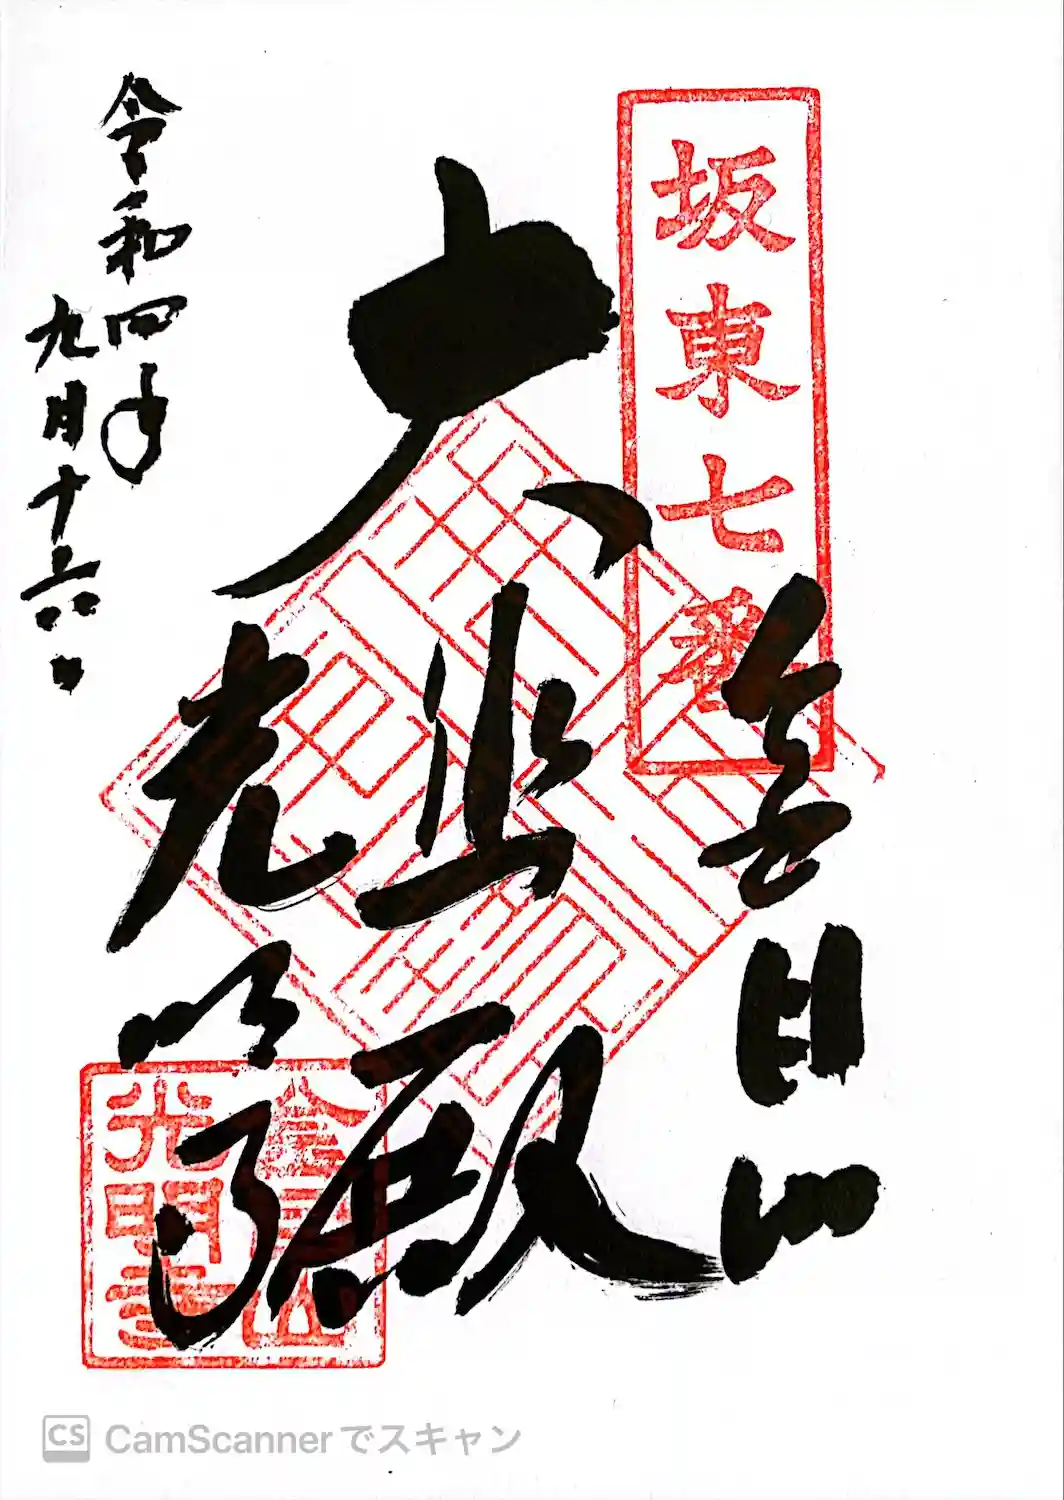 坂東七番
金目山
大悲殿
光明寺
令和四年
九月十六日
金目山
光明寺
CS CamScannerでスキャン